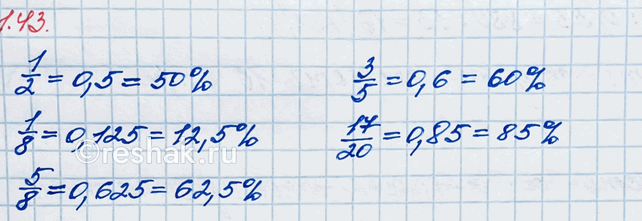 1.43.
1/2 = 0,5 = 50%
1/8 = 0,125 = 12,5%
5/8 = 0,625 = 62,5%
3/5 = 0,6 = 60%
17/20 = 0,85 = 85%
©reshak.ru